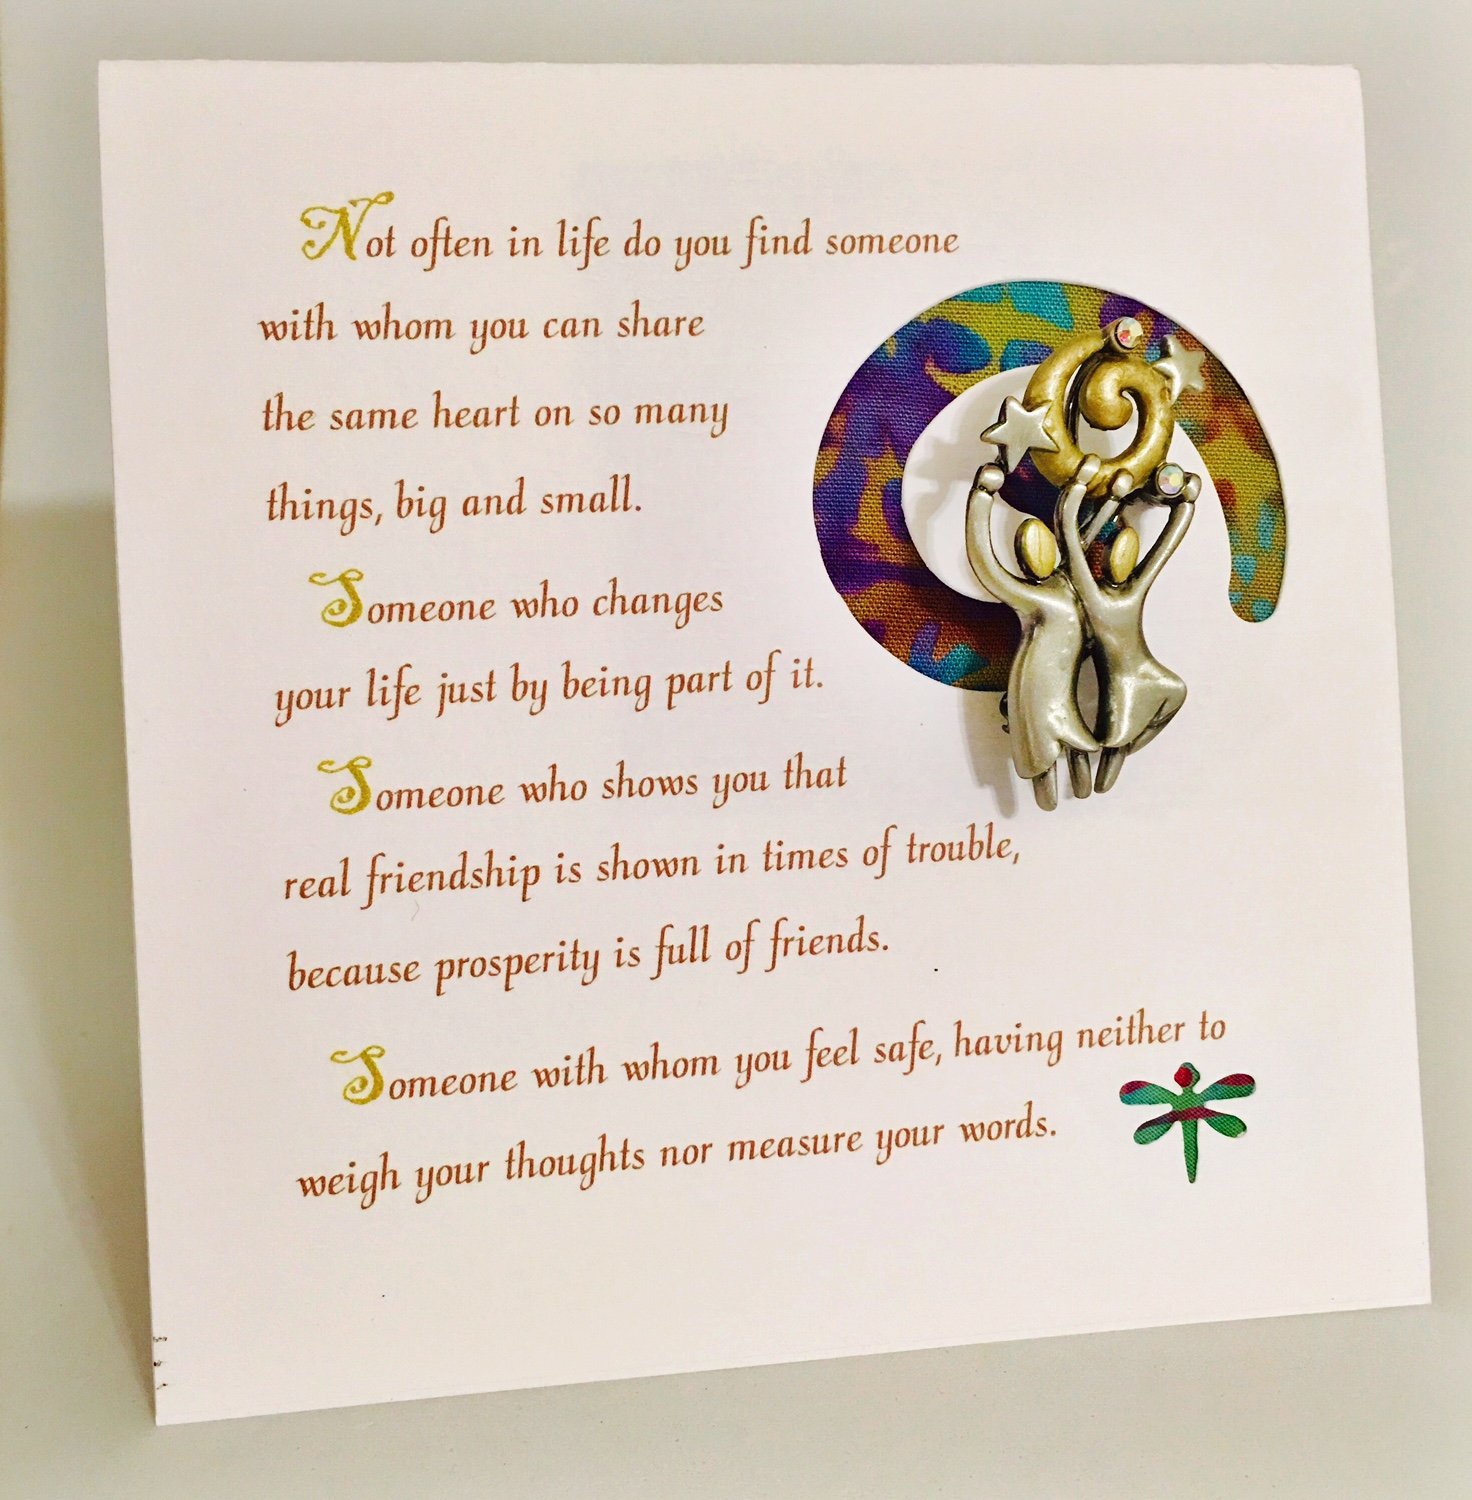 Not often in life do you find someone
with whom you can share
the same heart on so many
things, big and small.
Someone who changes
your life just by being part of it.
Someone who shows you that
real friendship is shown in times of trouble,
because prosperity is full of friends.
Someone with whom you feel safe, having neither to
weigh your thoughts nor measure your words.